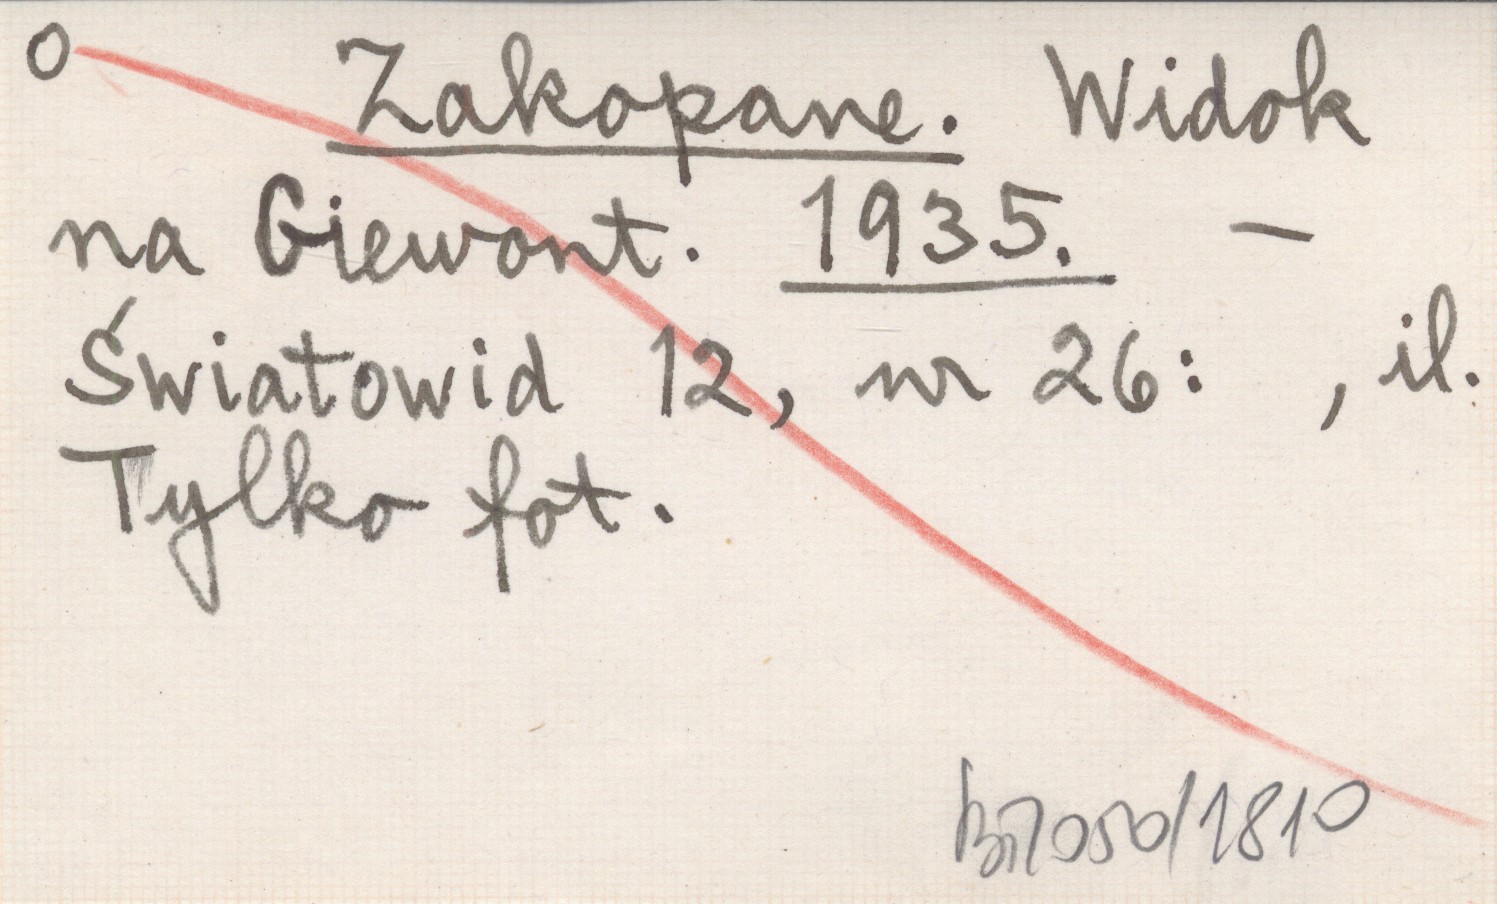 O Zakopane. Widok
na Giewont. 1935. –
Światowid 12, nr 26: , il.
Tylko fot.
/1810